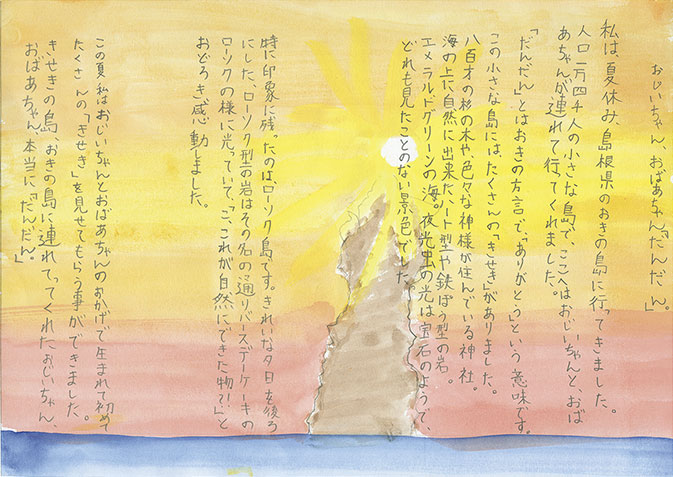 おじいちゃん、おばあちゃん「だんだん」。
私は、夏休み、島根県のおきの島に行ってきました。
人口一万四千人の小さな島で、ここへはおじいちゃんと、おば
あちゃんが連れて行ってくれました。
「だんだん」とはおきの方言で、「ありがとう」という意味です。
この小さな島には、たくさんの「きせき」がありました。
八百才の杉の木や、色々な神様が住んでいる神社。
海の上に自然に出来たハート型や鉄ぽう型の岩。
エメラルドグリーンの海。夜光虫の光は宝石のようで、
どれも見たことのない景色でした。
特に印象に残ったのは、ローソク島です。きれいな夕日を後ろ
にした、ローソク型の岩はその名の通りバースデーケーキの
ローソクの様に光っていて、「こ、これが自然にできた物!?」と
おどろき感動しました。
この夏、私はおじいちゃんとおばあちゃんのおかげで生まれて初めて
たくさんの「きせき」を見せてもらう事ができました。
きせきの島、おきの島に連れてってくれたおじいちゃん、
おばあちゃん、本当に「だんだん。」